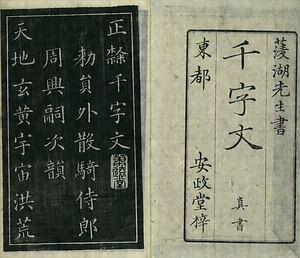 菱湖先生書
千字文
真書
東都
安政堂梓
正𣜩千字文
勅員外散騎侍郎
周興嗣次韻
天地玄黄宇宙洪荒